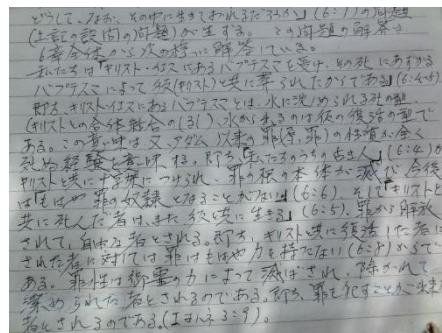 どうして、なお、その中に生きておれるだろうか」(6:1)の問題
(上記の設問の問題)が生ずる。この問題の解答は
6章全体から次の様に解答していき。
私たちは「キリスト・イエスにあるバプテスマを受け、その死にあずかる
バプテスマによって彼(キリスト)と共に葬られたからである」(6:4-5)
即ち、キリスト・イエスにあるバプテスマとは、水に沈められる死の型
(キリストとの合体接合の(3))、水から出るのは彼の復活の型で
ある。この意味は又、アダム以来の罪(原罪)の性質が全く
死ぬ経験を意味する。即ち、「私たちのうちの古き人」(6:4)が
キリストと共に十字架につけられ、罪の根の本体が滅び、今後
はもはや罪の奴隷となることがない」(6:6)そして「キリストと
共に死んだ者は、また彼と共に生きる」(6:5)、罪から解放
されて、自由な者とされる。即ち、キリストと共に復活した者に
された者に対しては罪はもはや力を持たない(6:8)からで
ある。罪性は御霊の力によって滅ぼされ、除かれて
潔められた者とされるのである。即ち、罪を犯すことが出来ない
者とされるのである。(Iヨハネ3:9)。